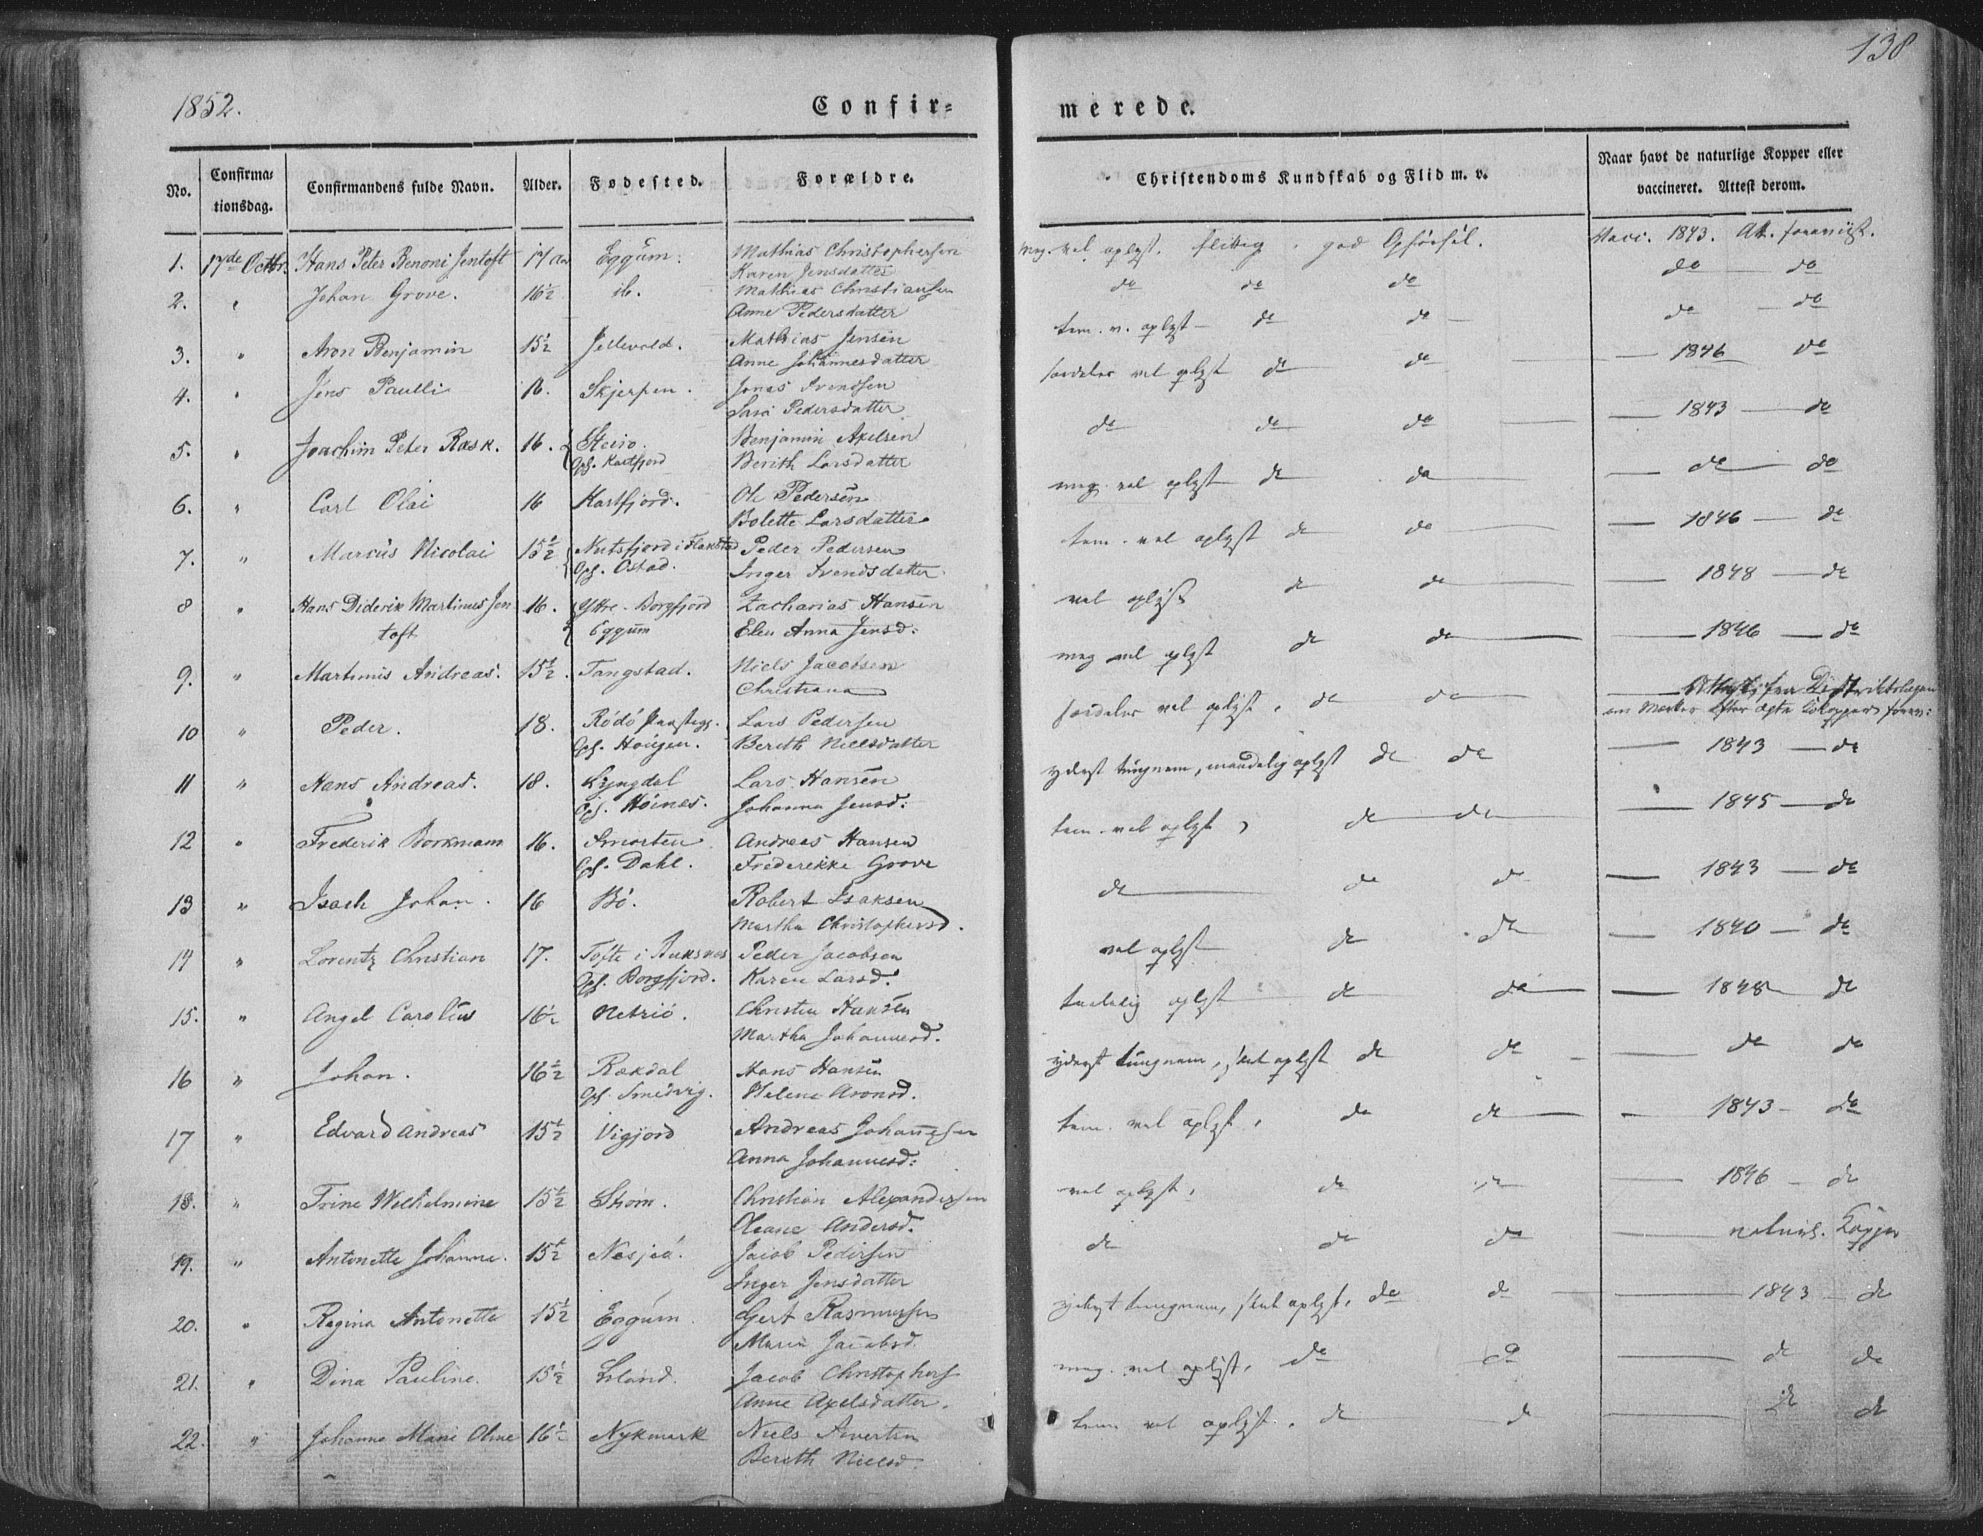 138
1852.
Confir=
merede.
No.
Confirma-
tionsdag.
Confirmandens fulde Navn.
Alder.
Fødested.
Forældre.
Christendoms Kundskab og Flid m. v.
Naar havt de naturlige Kopper eller
vaccineret. Attest derom.
1. 17de Octbr. Hans Peter Benoni Jentoft 17 Eggum. Mathias Christophersen
Karen Jensdatter
meg. vel oplyst. flittig god Opførsel. Vacc. 1843. At. foreviist.
2. " Johan Grove. 16½ ib. Mathias Christiansen
Anne Pedersdatter
do do do do do
3. " Aron Benjamin 15½ Jellevold. Mathias Jensen
Anne Johannesdatter
tem. v. oplyst do do do do
4. " Jens Paulli 16. Skjerpen. Jonas Svendsen
Sara Pedersdatter
særdeles vel oplyst do do 1846 do
5. " Joachim Peter Rask. 16. Steiro.
Ops. Kartfjord
Benjamin Axelsen
Berith Larsdatter
do do do 1843 do
6. " Carl Olai 16 Kartfjord. Ole Pedersen
Bolette Larsdatter
meg. vel oplyst do do do do
7. " Marcus Nicolai 15½ Nutsfjord i Flakstad
Ops. Ostad.
Peder Pedersen
Inger Svendsdatter
tem. vel oplyst do do 1846 do
8 " Hans Diderik Martinus Jen 16. Yttre-Borgfjord Zacharias Hansen
toft Eggum Elen Anna Jensd:
vel oplyst do do 1848 do
9. " Martinus Andreas. 15½. Tangstad. Niels Jacobsen
Christiana
meg vel oplyst do do 1846 do
10 " Peder. 18. Rödö Præstegj.
Ops. Hougen.
Lars Pedersen
Berith Nielsdatter
særdeles vel oplyst, do do Attest fra Distriktslægen
om Mærker efter ægte Kokopper forev:
11 " Hans Andreas. 18. Lyngdal
Ops. Höinæs.
Lars Hansen
Johanna Jensd:
yderst tungnem, maadelig oplyst do do 1843 do
12 " Frederik Borkmann 16. Smorten
Ops. Dahl.
Andreas Hansen
Frederikke Grove
tem. vel oplyst, do do 1845 do
13 " Isach Johan. 16 Bö. Robert Isaksen
Martha Christophersd.
do do do 1843 do
14 " Lorentz Christian 17. Tofte i Buksnæs
Ops. Borgfjord.
Peder Jacobsen
Karen Larsd.
vel oplyst do do 1840 do
15. " Angel Carolius 16½ Christen Hansen
Martha Johannesd.
taalelig oplyst do do 1848 do
16 " Johan. 16½ Rækdal
Ops. Smedvig.
Hans Hansen
Helena Aronsd.
yderst tungnem, slet oplyst do do do do
17 " Edvard Andreas 15½ Vigjord Andreas Johannesen
Anna Johannesd:
tem. vel oplyst, do do 1843 do
18. " Trine Wilhelmine 15½ Christian Alexandersen
Oleane Andersd.
vel oplyst, do do 1846 do
19. " Antonette Johanne. 15½ Nesjeö. Jacob Pedersen
Inger Jensdatter
do do do naturl. Kopper
20. " Regina Antonette 15½ Eggum Gert Rasmussen
Maria Jacobsd.
yderst tungnem, slet oplyst, do do 1843 do
21. " Dina Pauline. 15½ Jacob Christophers
Anne Axelsdatter.
meg. vel oplyst, do do do do
22. " Johanna Marie Oline 16½ Nykmark Niels Sivertsen
Bereth Nielsd.
tem. vel oplyst. do do do do